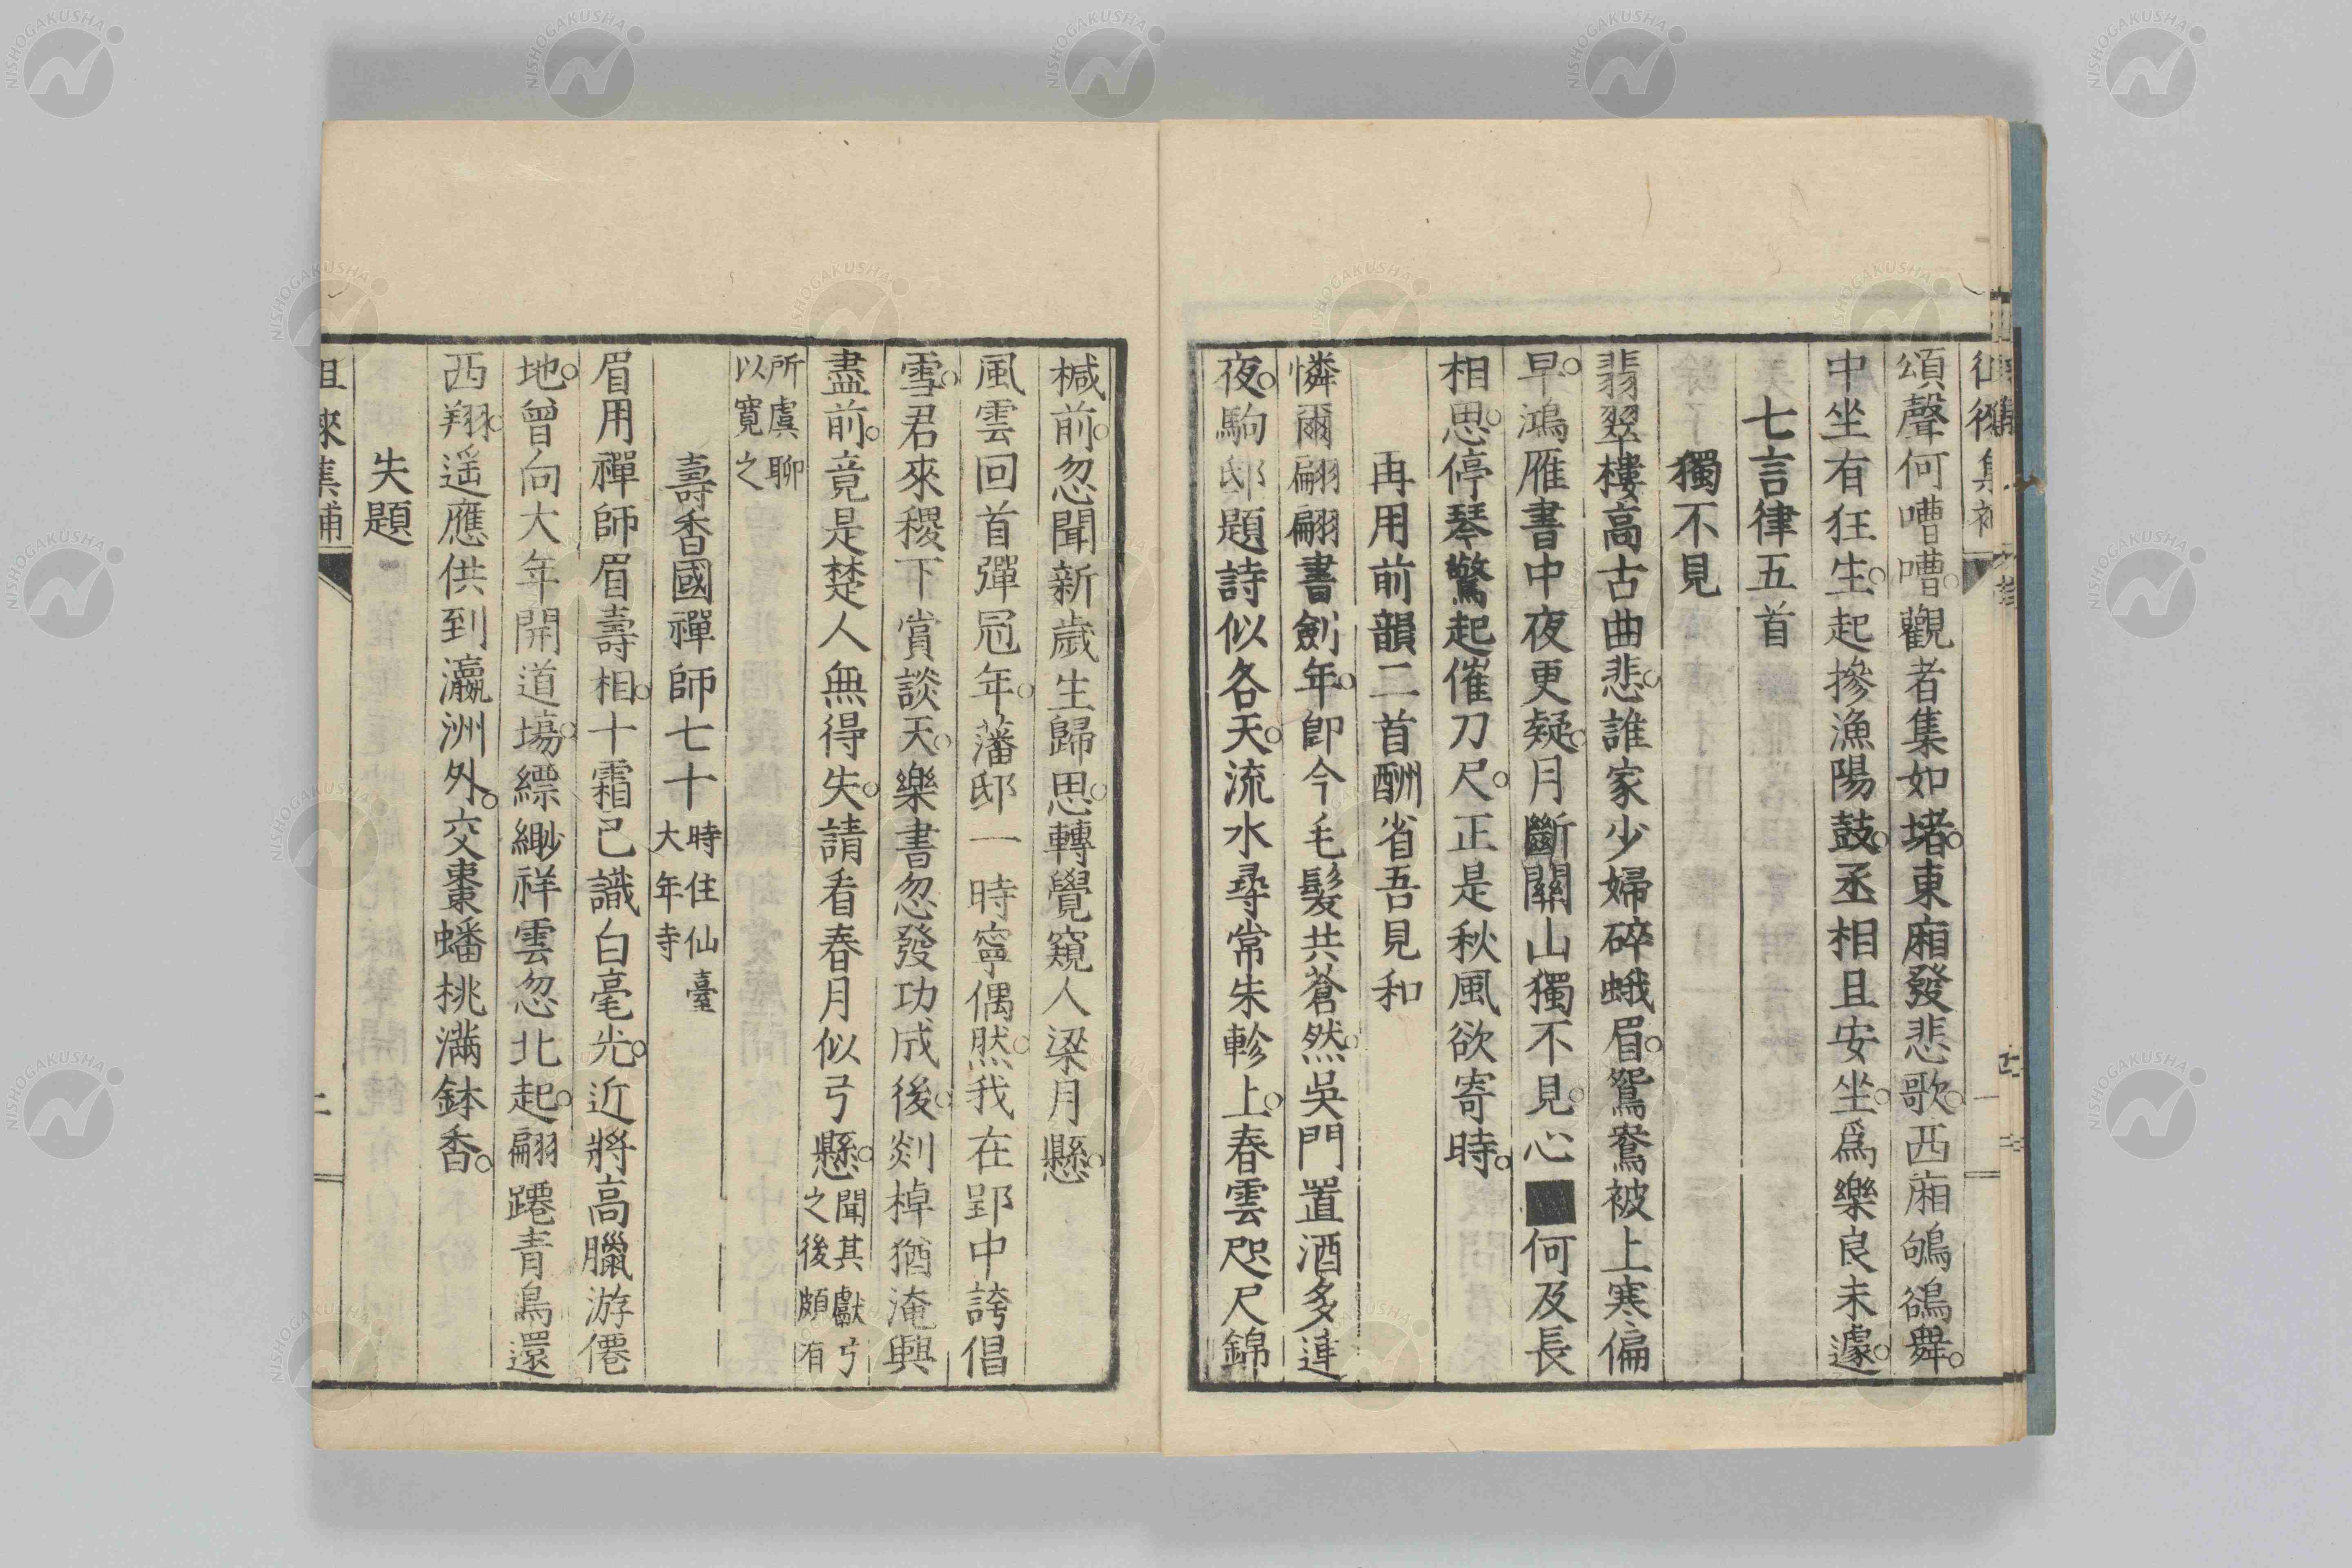 頌聲何嘈嘈觀者集如堵東廂發悲歌西廂鴝鵒舞
中坐有狂生起摻漁陽鼓丞相且安坐爲樂良未遽
七言律五首
獨不見
翡翠樓高古曲悲誰家少婦碎蛾眉鴛鴦被上寒偏
早鴻雁書中夜更疑月斷關山獨不見心■何及長
相思停琴驚起催刀尺正是秋風欲寄時
再用前韻二首酬省吾見和
憐爾翩翩書劍年卽今毛髮共蒼然吳門置酒多連
夜駒邸題詩似各天流水尋常朱軫上春雲咫尺錦
椷前忽聞新歲生歸思轉覺窺人梁月懸
風雲回首彈冠年藩邸一時寧偶然我在郢中誇倡
雪君來稷下賞談天樂書忽發功成後剡棹猶淹興
盡前竟是楚人無得失請看春月似弓懸聞其獻弓之後頗有
所虞聊以寬之
壽香國禪師七十時住仙臺大年寺
眉用禪師眉壽相十霜已識白毫光近將高臘游僊
地曾向大年開道場縹緲祥雲忽北起翩躚青鳥還
西翔遥應供到瀛洲外交棗蟠桃滿鉢香
失題
徂徠集補
NISHOGAKUSHA